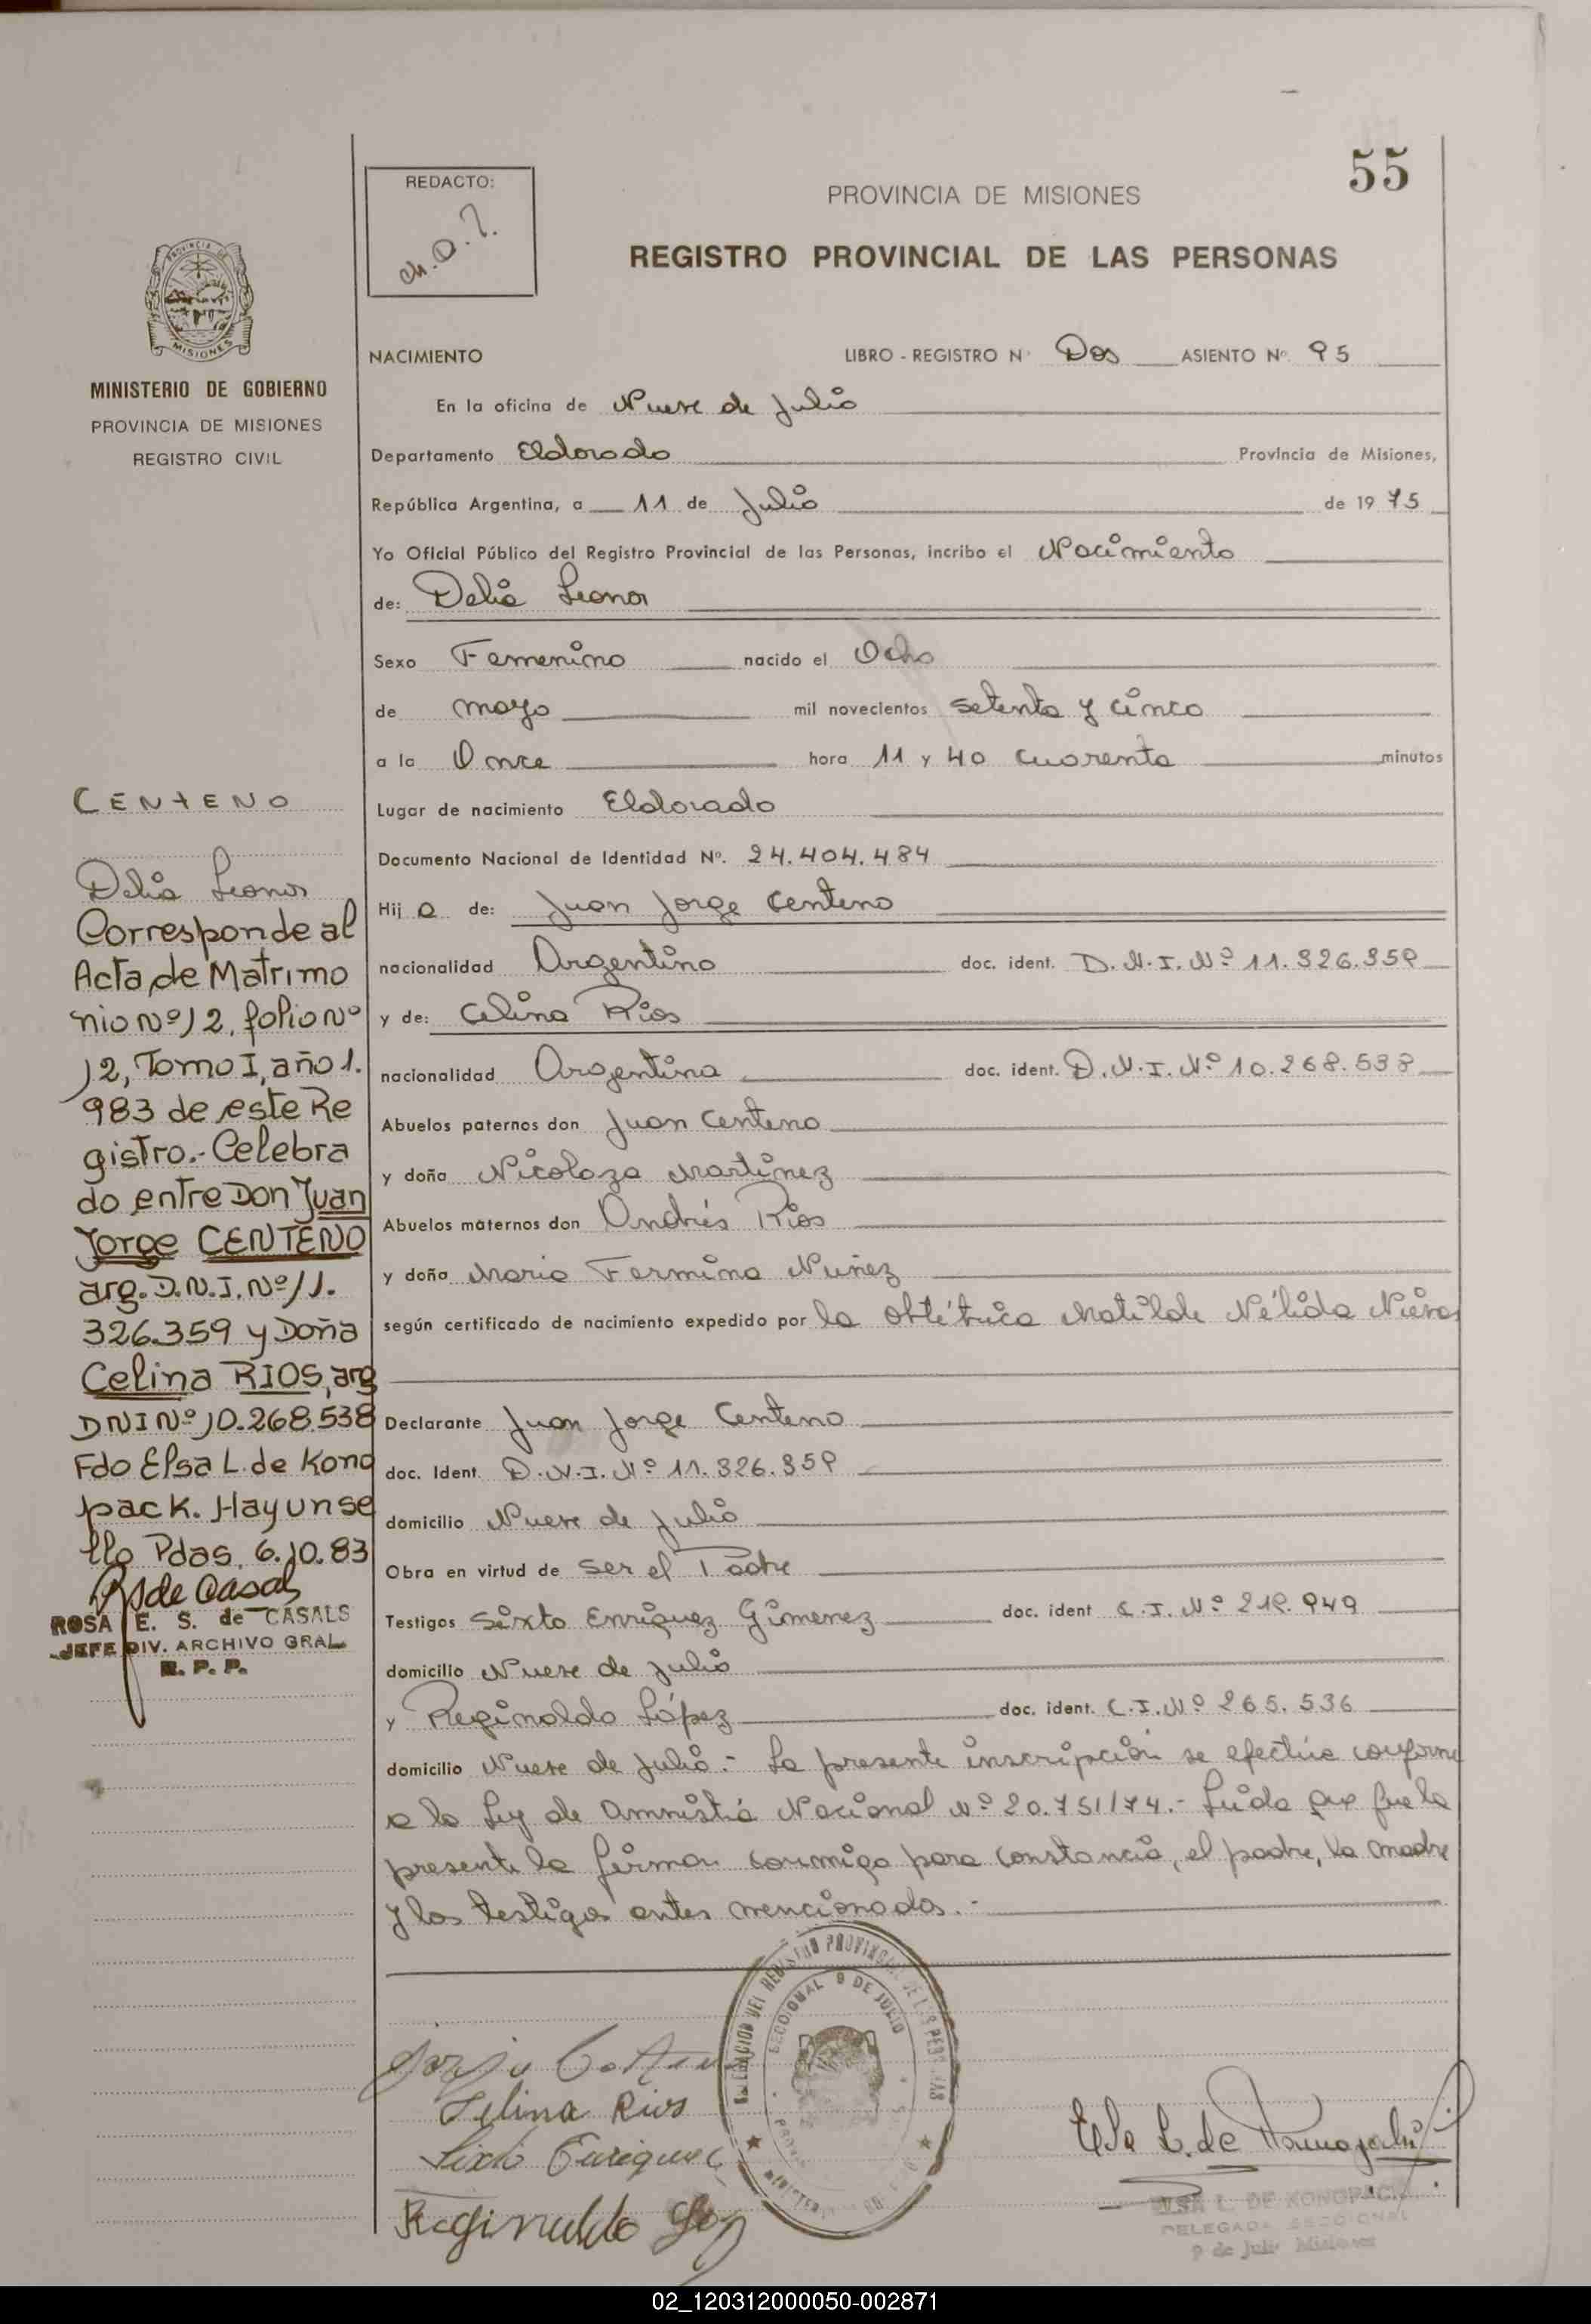 55
REDACTO:
PROVINCIA DE MISIONES
REGISTRO PROVINCIAL DE LAS PERSONAS
PROVINCIA DE
MISIONES
MINISTERIO DE GOBIERNO
PROVINCIA DE MISIONES
REGISTRO CIVIL
NACIMIENTO LIBRO - REGISTRO Nº Dos ASIENTO Nº 95
En la oficina de Nueve de Julio
Departamento Eldorado Provincia de Misiones,
República Argentina, a 11 de Julio de 19 75
Yo Oficial Público del Registro Provincial de las Personas, incribo el Nacimiento
de: Delia Leonor
Sexo Femenino nacido el Ocho
de mayo mil novecientos setenta y cinco
a la Once hora 11 y 40 cuarenta minutos
Lugar de nacimiento Eldorado
Documento Nacional de Identidad Nº. 24.404.484
Hij a de: Juan Jorge Centeno
nacionalidad Argentino doc. ident. D.N.I. Nº 11.326.359
y de: Celina Rios
nacionalidad Argentina doc. ident. D.N.I. Nº 10.268.538
Abuelos paternos don Juan Centeno
y doña Nicolaza Martinez
Abuelos maternos don Andrés Rios
y doña Maria Fermina Nuñez
según certificado de nacimiento expedido por la obtétrica Matilde Nélida
Declarante Juan Jorge Centeno
doc. Ident. D.N.I. Nº 11.326.359
domicilio Nueve de Julio
Obra en virtud de ser el Padre
Testigos Sixto Enriquez Gimenez doc. ident C.I. Nº 219.949
domicilio Nueve de Julio
y Reginaldo López doc. ident. C.I. Nº 265.536
domicilio Nueve de Julio.- La presente inscripción se efectúa conforme
a la Ley de Amnistía Nacional Nº 20.751/74.- Leida que fue la
presente la firman conmigo para constancia, el padre, la madre
y los testigos antes mencionados.-
CENTENO
Delia Leonor
Corresponde al
Acta de Matrimo
nio Nº 12, folio Nº
12, Tomo I, año 1.
983 de este Re
gistro.- Celebra
do entre Don Juan
Jorge CENTENO
arg. D.N.I. Nº 11.
326.359 y Doña
Celina RIOS, arg
DNI Nº 10.268.538
Fdo Elsa L. de Kono
pack. Hay un se
llo Pdas, 6.10.83
ROSA E. S. de CASALS
JEFE DIV. ARCHIVO GRAL
R. P. P.
SECCIONAL 9 DE JULIO
Celina Rios
Sixto Enriquez
Reginaldo
Elsa L. de
ELSA L. DE KONOPACK
DELEGADA SECCIONAL
9 de Julio Misiones
02_120312000050-002871